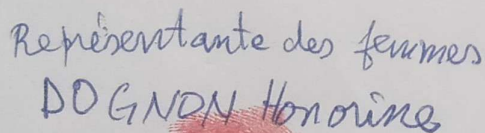 Représentante des femmes
DOGNON Honorine